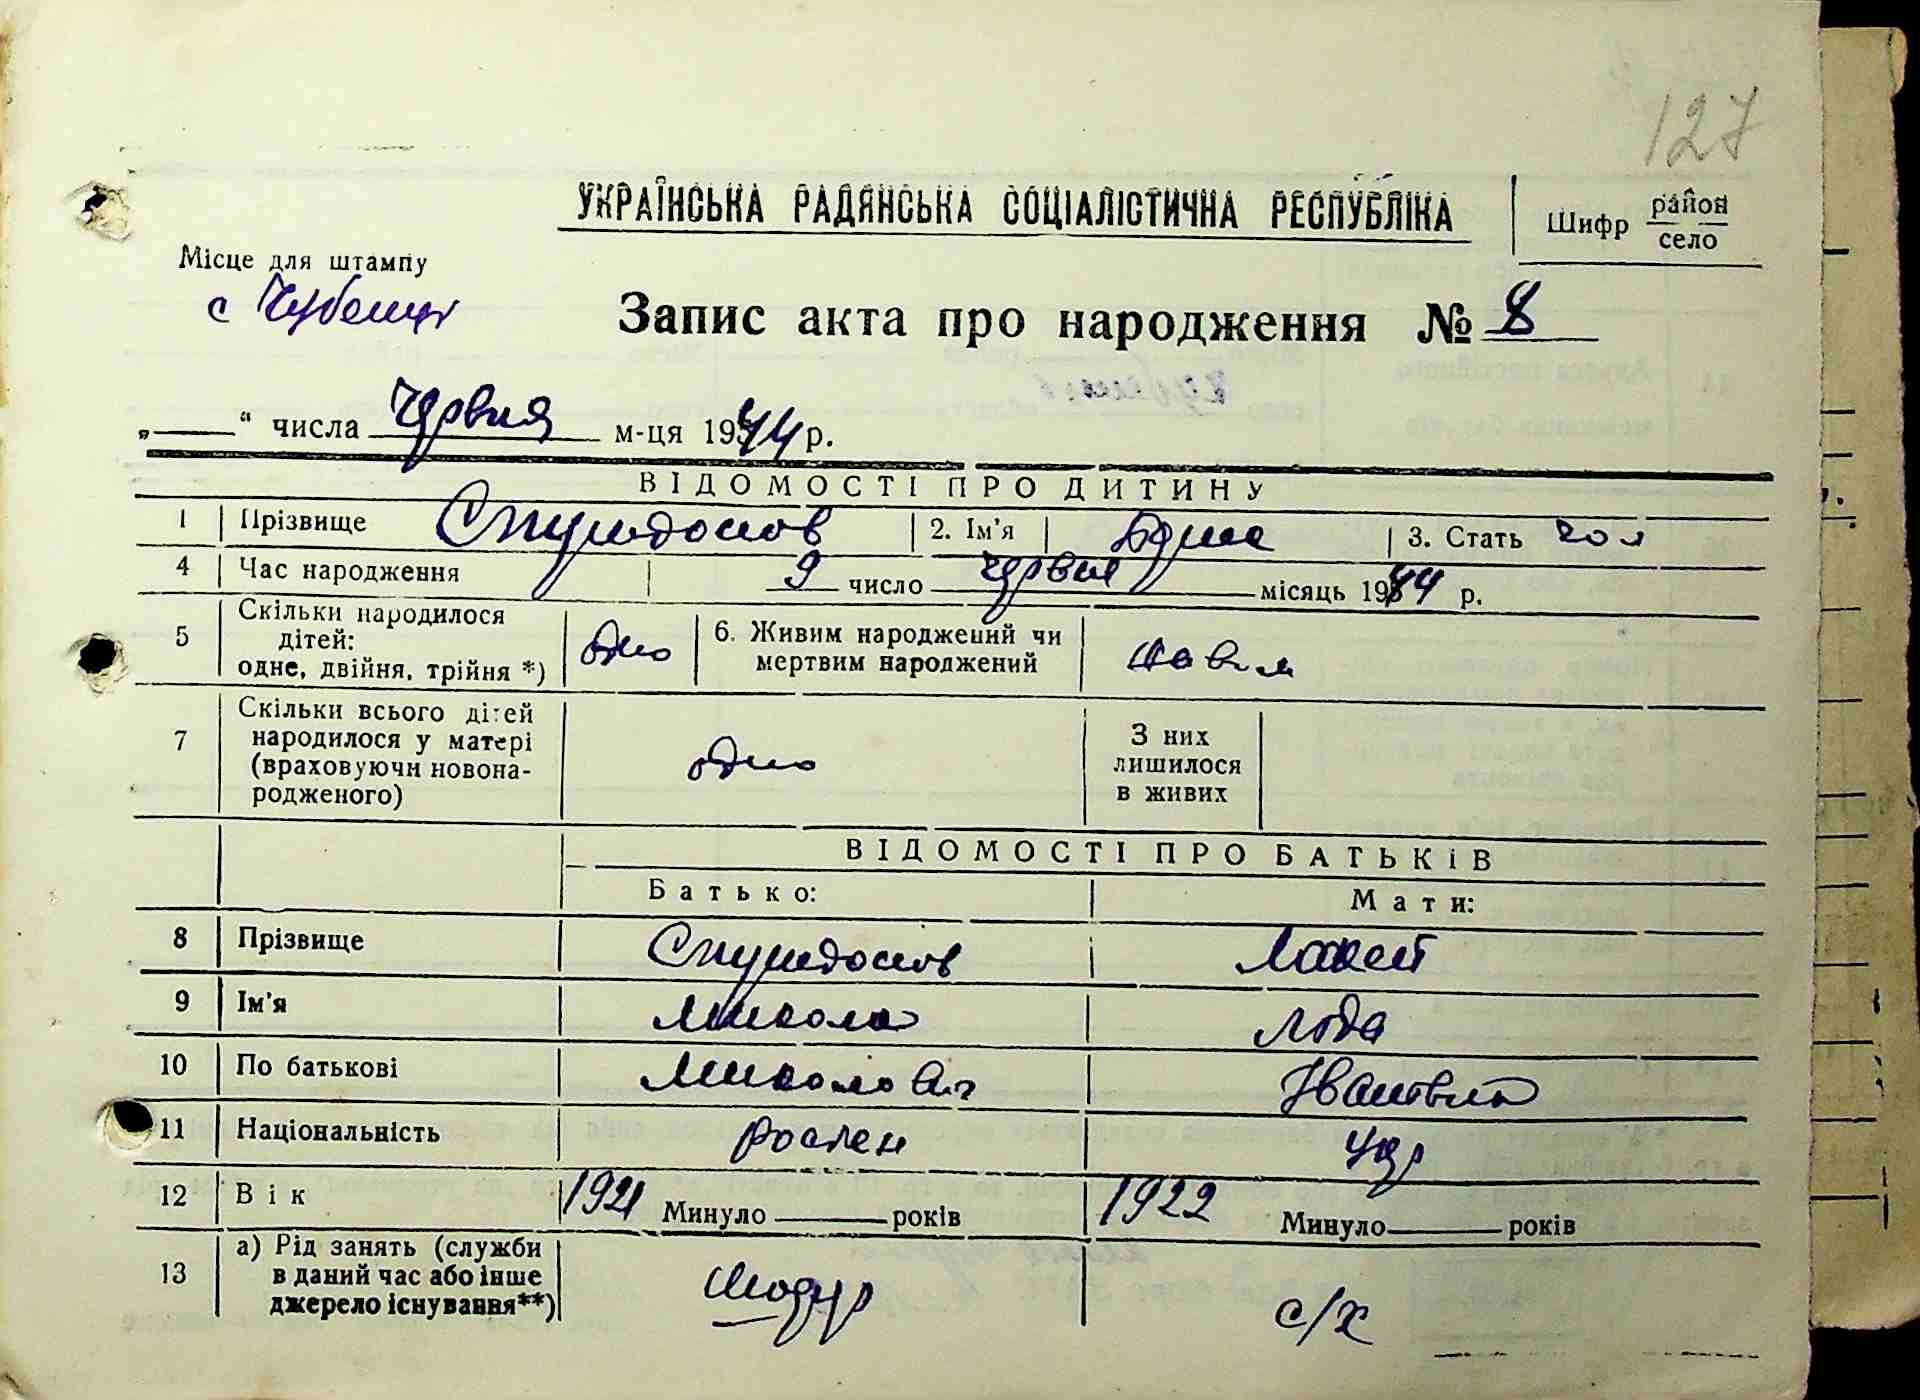 127
УКРАЇНСЬКА РАДЯНСЬКА СОЦІАЛІСТИЧНА РЕСПУБЛІКА
Шифр район
село
Місце для штампу
с
Запис акта про народження № 8
„ “ числа червня м-ця 1944 р.
ВІДОМОСТІ ПРО ДИТИНУ
1 Прізвище 2. Ім'я 3. Стать чол
4 Час народження 9 число червня місяць 1944 р.
5 Скільки народилося дітей: одне, двійня, трійня *) одно 6. Живим народжений чи мертвим народжений
7 Скільки всього дітей народилося у матері (враховуючи новонародженого) одно З них лишилося в живих
ВІДОМОСТІ ПРО БАТЬКІВ
Батько: Мати:
8 Прізвище
9 Ім'я Микола
10 По батькові Миколович
11 Національність росіен укр
12 Вік 1921 Минуло років 1922 Минуло років
13 а) Рід занять (служби в даний час або інше джерело існування**) с/х